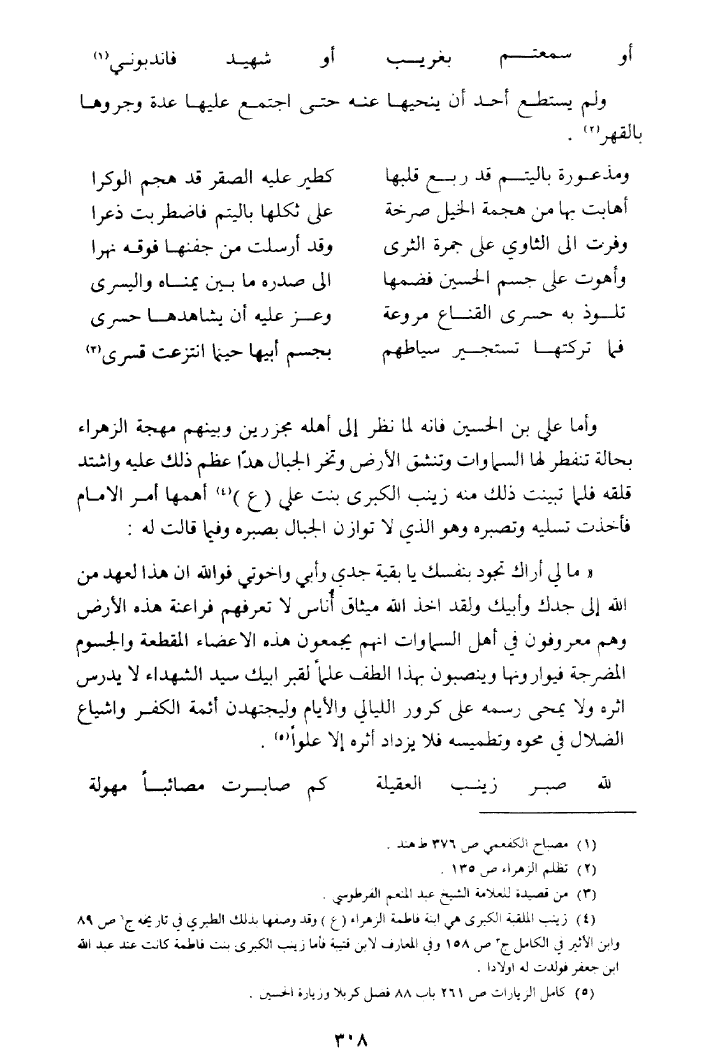 أو سمعتم بغريب أو شهيد فاندبوني(١)
ولم يستطع أحد أن ينحيها عنه حتى اجتمع عليها عدة وجروها
بالقهر(٢) .
ومذعورة باليتم قد ربع قلبها كطير عليه الصقر قد هجم الوكرا
أهابت بها من هجمة الخيل صرخة على ثكلها باليتم فاضطربت ذعرا
وفرت الى الثاوي على جمرة الثرى وقد أرسلت من جفنها فوقه نهرا
وأهوت على جسم الحسين فضمها الى صدره ما بين يمناه واليسرى
تلوذ به حسرى القناع مروعة وعز عليه أن يشاهدها حسرى
فما تركتها تستجير سياطهم بجسم أبيها حينما انتزعت قسرى(٣)
وأما علي بن الحسين فانه لما نظر إلى أهله مجزرين وبينهم مهجة الزهراء
بحالة تنفطر لها السماوات وتنشق الأرض وتخر الجبال هدّا عظم ذلك عليه واشتد
قلقه فلما تبينت ذلك منه زينب الكبرى بنت علي (ع)(٤) أهمها أمر الامام
فأخذت تسليه وتصبره وهو الذي لا توازن الجبال بصبره وفيما قالت له :
« ما لي أراك تجود بنفسك يا بقية جدي وأبي واخوتي فوالله ان هذا لعهد من
الله إلى جدك وأبيك ولقد اخذ الله ميثاق أُناس لا تعرفهم فراعنة هذه الأرض
وهم معروفون في أهل السماوات انهم يجمعون هذه الاعضاء المقطعة والجسوم
المضرجة فيوارونها وينصبون بهذا الطف علماً لقبر ابيك سيد الشهداء لا يدرس
اثره ولا يمحى رسمه على كرور الليالي والأيام وليجتهدن أئمة الكفر واشياع
الضلال في محوه وتطميسه فلا يزداد أثره إلا علواً(٥) .
لله صبر زينب العقيلة كم صابرت مصائباً مهولة
(١) مصباح الكفعمي ص ٣٧٦ ط هند .
(٢) تظلم الزهراء ص ١٣٥ .
(٣) من قصيدة للعلامة الشيخ عبد المنعم الفرطوسي .
(٤) زينب الملقبة الكبرى هي ابنة فاطمة الزهراء (ع) وقد وصفها بذلك الطبري في تاريخه ج٦ ص ٨٩
وابن الأثير في الكامل ج٣ ص ١٥٨ وفي المعارف لابن قتيبة فأما زينب الكبرى بنت فاطمة كانت عند عبد الله
ابن جعفر فولدت له اولادا .
(٥) كامل الزيارات ص ٢٦١ باب ٨٨ فصل كربلا وزيارة الحسين .
٣٠٨